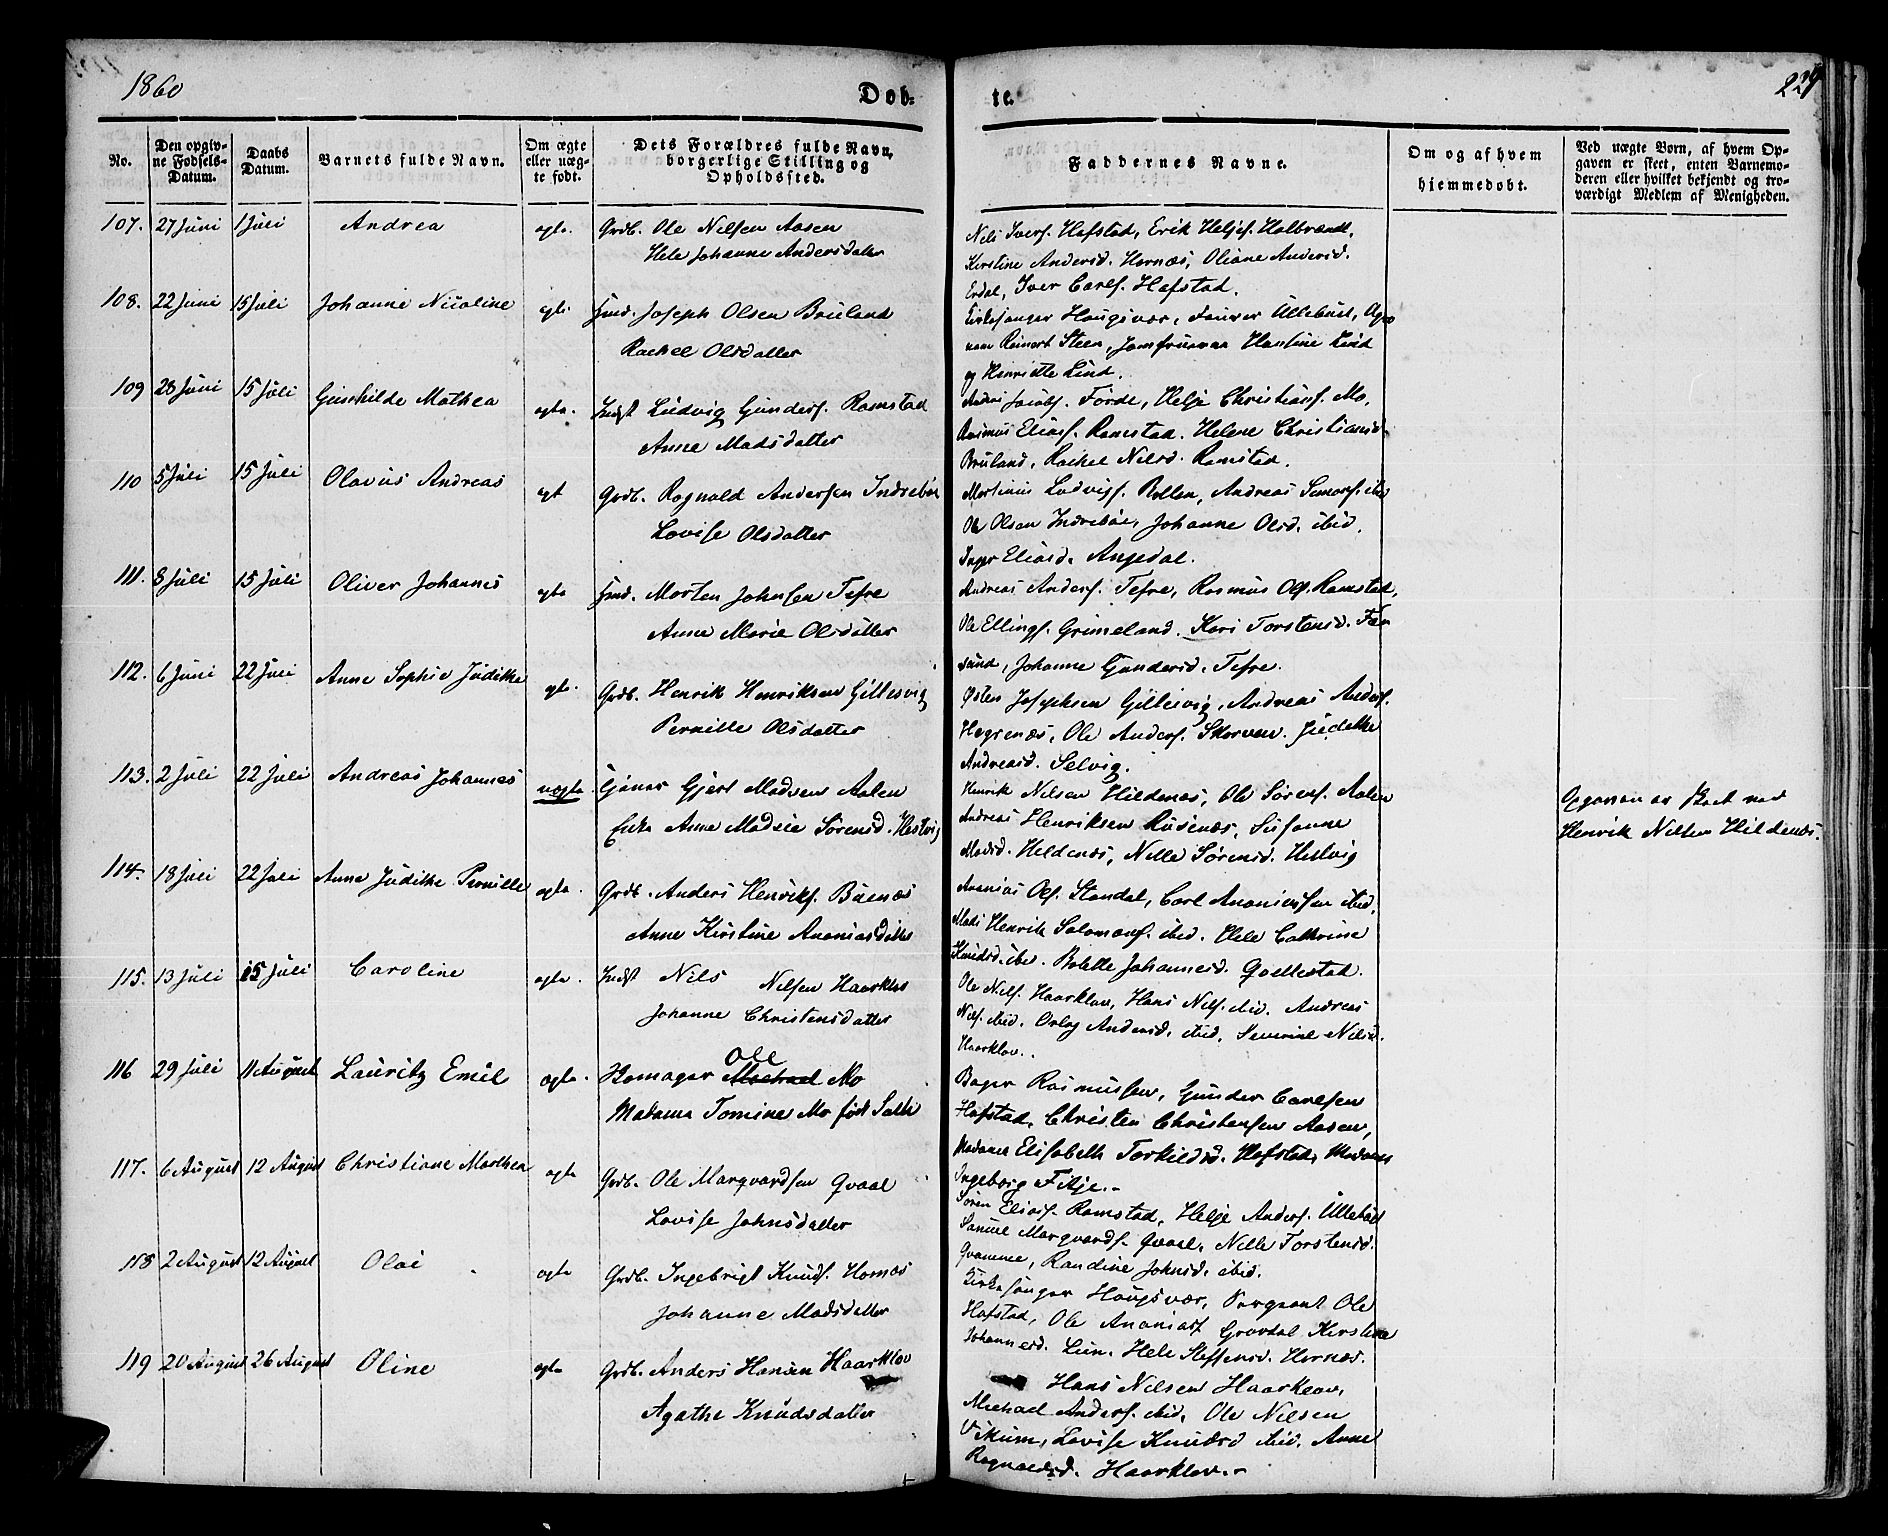 1860
Døb-
te.
229
No.
Den opgiv-
ne Fødsels-
Datum.
Daabs
Datum.
Barnets fulde Navn.
Om ægte
eller uæg-
te født.
Dets Forældres fulde Navn,
borgerlige Stilling og
Opholdssted.
Faddernes Navne.
Om og af hvem
hjemmedøbt.
Ved uægte Børn, af hvem Op-
gaven er skeet, enten Barnemo-
deren eller hvilket bekjendt og tro-
værdigt Medlem af Menigheden.
107. 27 Juni 1 Juli Andrea ægte. Grdb. Ole Nilsen Aasen
Hele Johanne Andersdatter
Nils Ivers. Hafstad, Erik Heljes. Halbrændt,
Kirstine Andersd. Hornæs, Oliane Andersd.
Erdal, Iver Carls. Hafstad.
108. 22 Juni 15 Juli Johanne Nicoline ægte Hmd. Joseph Olsen Bruland
Rachel Olsdatter
Kirkesanger Hougsvær, Ullebust,
Reinert Steen, Jomfruerne Hansine Lind
og Henriette Lind.
109 28 Juni 15 Juli Gunhilde Mathea ægte. Indst Ludvig Gunders. Ramstad
Anne Madsdatter
Andreas Jacobs. Førde, Helje Christians. Mo,
Rasmus Elias. Ramstad. Helene Christiansd
Bruland, Rachel Nilsd. Ramstad.
110 5 Juli 15 Juli Olavus Andreas ægt Grdb. Ragnald Andersen Indrebøe
Lovise Olsdatter
Martinus Ludvigs. Bollen, Andreas Simons. ibid
Ole Olsen Indrebøe, Johanne Olsd. ibid.
Inger Eliasd. Angedal.
111. 8 Juli 15 Juli Oliver Johannes ægte Hmd. Morten Johnsen Tefre
Anne Marie Olsdatter
Andreas Anders. Tefre, Rasmus Ols. Ramstad,
Ole Ellings. Grimeland. Kari Torstensd. Far
sund, Johanne Gundersd. Tefre.
112. 6 Juni 22 Juli Anne Sophie Judithe ægte. Grdb. Henrik Henriksen Gillesvig
Pernille Olsdatter
Østen Josephsen Gillesvig, Andreas Anders.
Hegrenæs, Ole Anders. Skorven. Judithe
Andreasd. Selvig.
113. 2 Juli 22 Juli Andreas Johannes uægte. Gjert Madsen Aalen
Enke Anne Madsie Sørensd. Hestvig
Henrik Nilsen Hildenæs, Ole Sørens. Aalen
Andreas Henriksen Rusenæs, Susanne
Madsd. Heldenæs, Nille Sørensd. Hestvig
Opgaven er skeet ved
Henrik Nilsen Hildenæs.
114. 18 Juli 22 Juli Anne Judithe Pernille ægte. Grdb. Anders Henriks. Buenæs
Anne Kirstine Ananiasdatter
Ananias Ols. Standal, Carl Ananiassen ibid,
Mads Henrik Salomons. ibid. Hele Cathrine
Knudsd. ibid. Bolette Johannesd. Gjellestad.
115. 13 Juli 15 Juli Caroline ægte. Indst Nils Nilsen Haarklov
Johanne Christensdatter
Ole Nils. Haarklov, Hans Nils. ibid. Andreas
Nils. ibid. Orlog Andersd. ibid. Severine Nilsd.
Haarklov.
116 29 Juli 11 August Lauritz Emil ægte. Skomager Ole Michael Mo
Madame Tomine Mo født
Bager Rasmussen, Gunder Carlsen
Hafstad, Christen Christensen Aasen,
Madame Elisabeth Torkildsd. Hafstad, Madame
Ingeborg Fitje.-
117. 6 August 12 August Christiane Marthea ægte Grdb. Ole Marqvardsen Qvaal
Lovise Johnsdatter
Søren Elias. Ramstad, Helje Anders. Ullebust
Samuel Marqvards. Qvaal, Nille Torstensd.
Qvamme, Randine Johnsd. ibid.
118 2 August 12 August Olai ægte Grdb. Ingebrigt Knuds. Hornæs
Johanne Madsdatter
Kirkesanger Hougsvær, Sergeant Ole
Hafstad, Ole Ananias. Grovdal Kirstine
Johannesd. Lien. Hele Steffensd. Hornæs.
119 20 August 26 August Oline ægte Grdb. Anders Hansen Haarklov
Agathe Knudsdatter
Hans Nilsen Haarklov,
Michael Anders. ibid, Ole Nilsen
Vikum, Lovise Knudsd ibid. Anne
Ragnaldsd. Haarklov.-